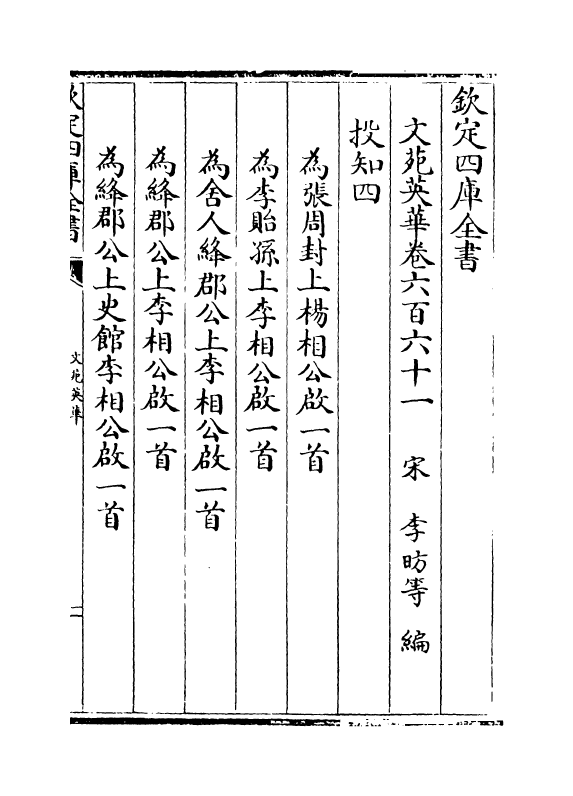 欽定四庫全書
文苑英華卷六百六十一 宋 李昉等 編
投知四
為張周封上楊相公啟一首
為李貽孫上李相公啟一首
為舍人絳郡公上李相公啟一首
為絳郡公上李相公啟一首
為絳郡公上史館李相公啟一首
欽定四庫全書
文苑英華
一